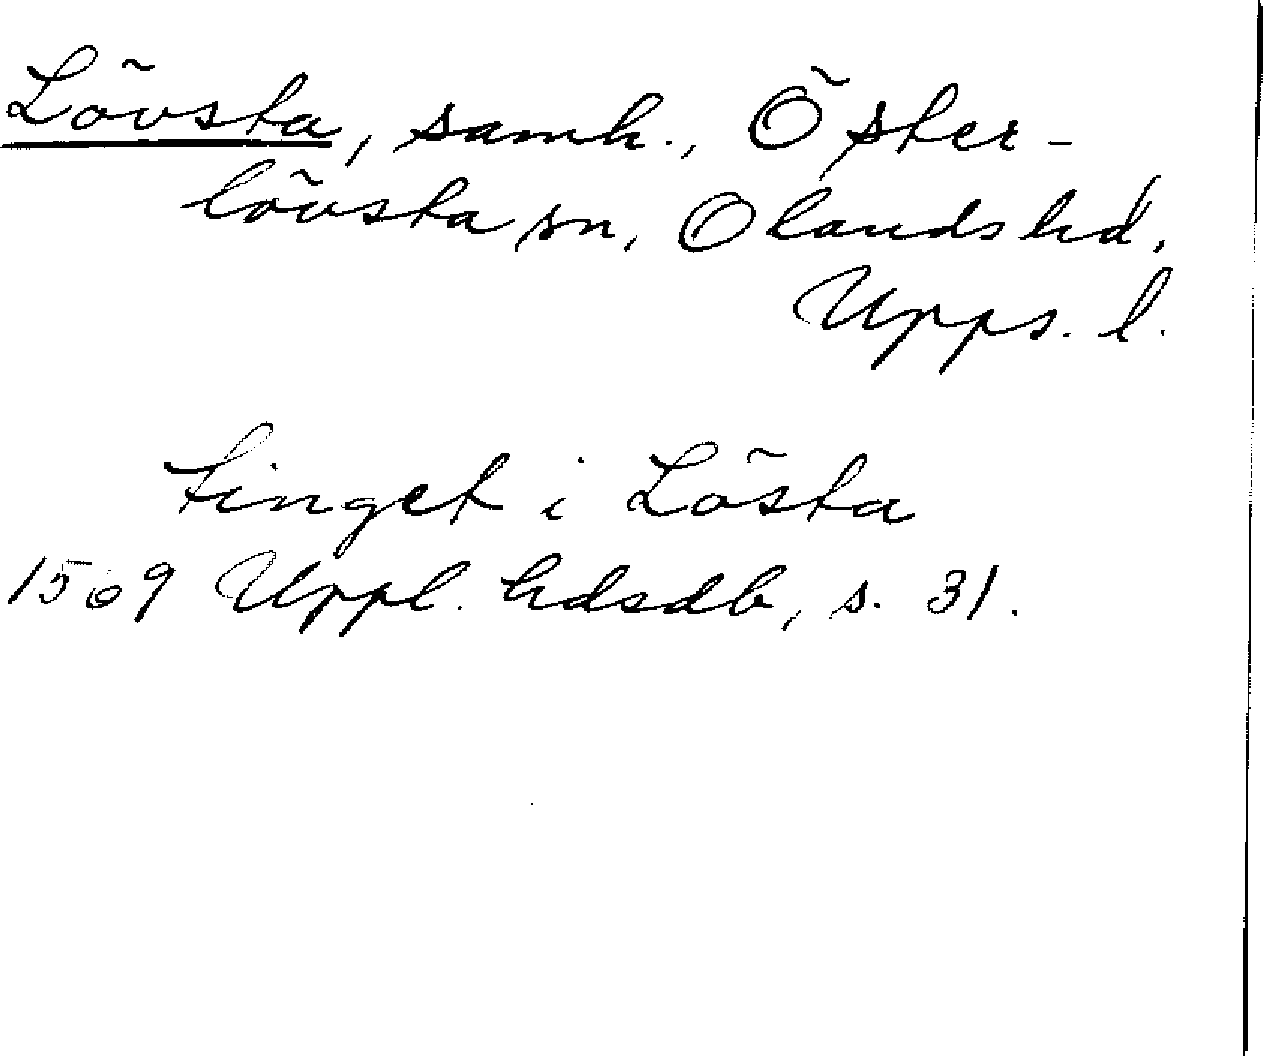 Lövsta, samh., Öster-
lövsta sn, Olands hd,
Upps. l.
tinget i Lösta
1509 Uppl. hdsdb, s. 31.